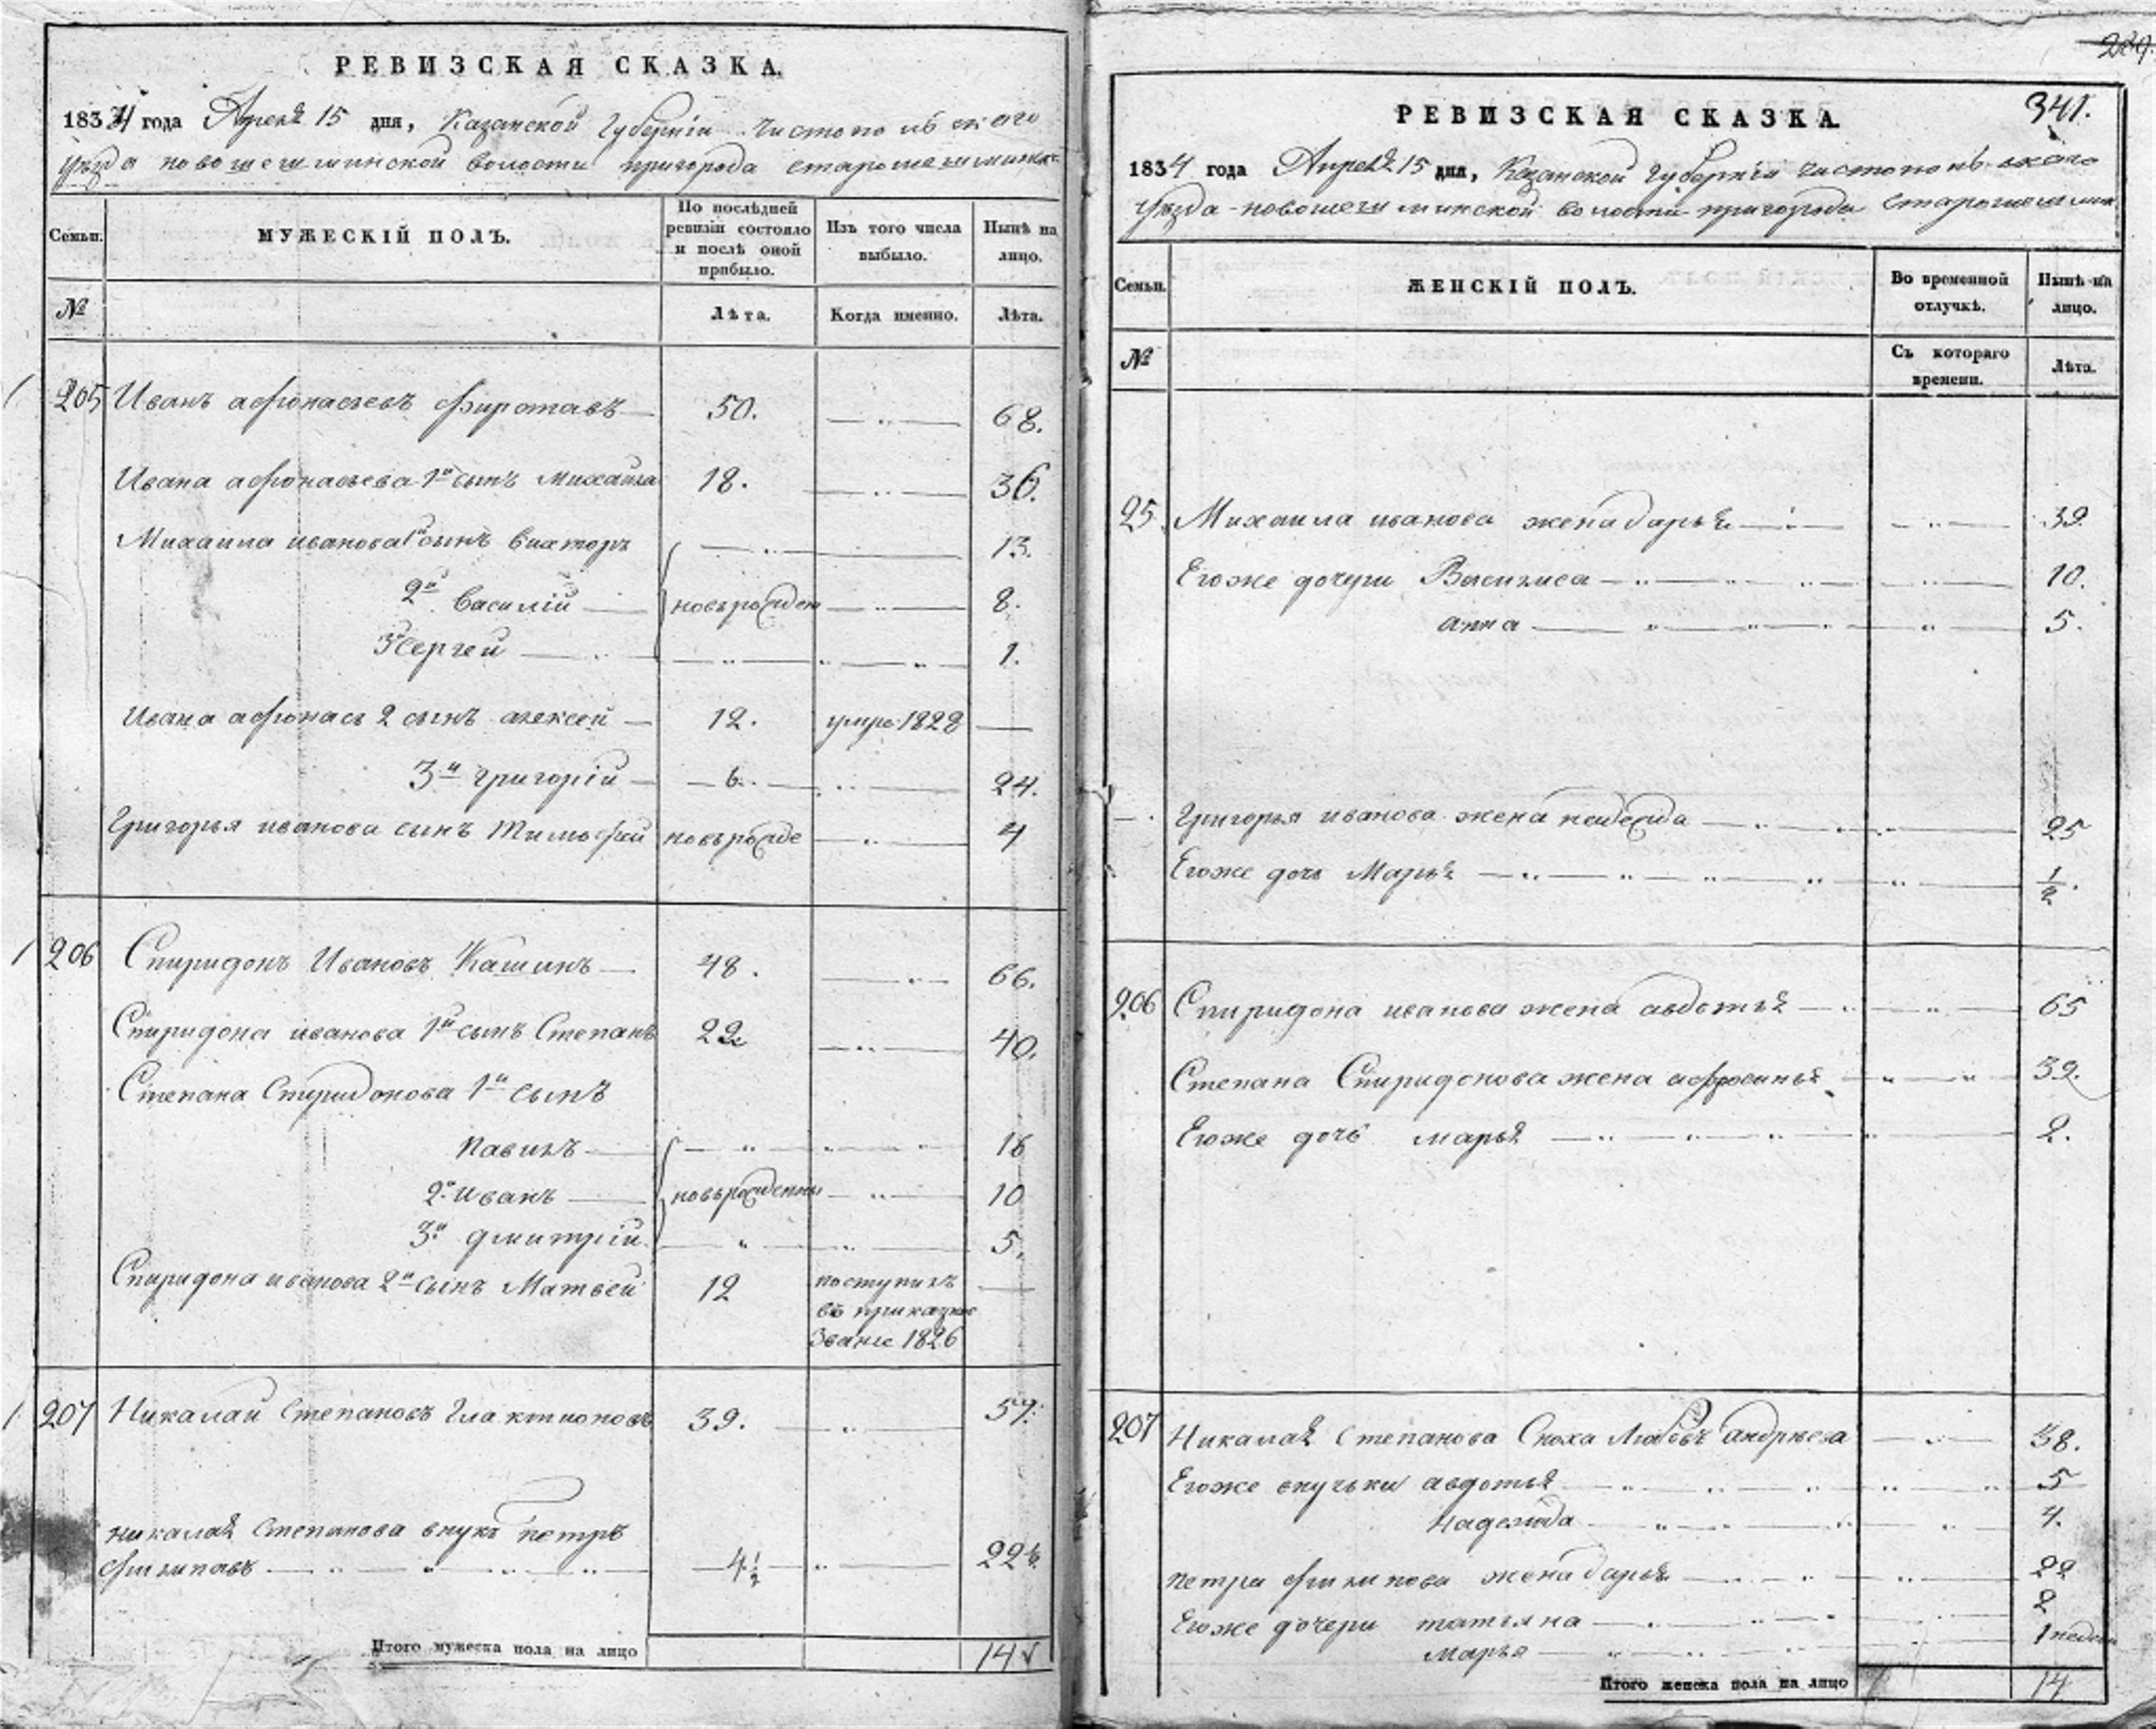 РЕВИЗСКАЯ СКАЗКА.
1834 года Апреля 15 дня, Казанской Губернiи Чистопольскаго
уезда новошешминской волости пригорода старошешминск
Семьи.
МУЖЕСКIЙ ПОЛЪ.
По послѣдней ревизiи состояло и послѣ оной прибыло.
Изъ того числа выбыло.
Нынѣ на лицо.
№
Лѣта.
Когда именно.
Лѣта.
205 Иванъ афонасьевъ 50. 68.
Ивана афонасьева 1й сынъ Михайла 18. 36.
Михаила иванова 1й сынъ Викторъ 13.
2й Василiй новърожден 8.
3й Сергей 1.
Ивана афонась 2 сынъ алексей 12. умре 1828
3й григорiй 6. 24.
Григорья иванова сынъ Тимофей новърожде 4
206 Спиридонъ Ивановъ Кашинъ 48. 66.
Спиридона иванова 1й сынъ Степанъ 22 40.
Степана Спиридонова 1й сынъ
павилъ 16
2й иванъ новърожденны 10
3й дмитрiй 5.
Спиридона иванова 2й сынъ Матвей 12 поступилъ
въ приказне
званiе 1826
207 Никалай Степановъ Глактионовъ 39. 57.
никалая Степанова внукъ петръ
филипавъ 4 1/2 22 1/2
Итого мужеска пола на лицо 14
341.
РЕВИЗСКАЯ СКАЗКА.
1834 года Апреля 15 дня, Казанской Губернiи Чистопольскаго
уезда новошешминской волости пригорода Старошешминк
Семьи.
ЖЕНСКIЙ ПОЛЪ.
Во временной отлучкѣ.
Нынѣ на лицо.
№
Съ котораго времени.
Лѣта.
25 Михаила иванова жена дарья 39.
Егоже дочери Василиса 10.
анна 5.
Григорья иванова жена надежда 25
Егоже дочь Марья 1/2.
206 Спиридона иванова жена авдотья 65
Степана Спиридонова жена афросинья 39.
Егоже дочь марья 2.
207 Никалая Степанова Сноха Любовь андрѣева 38.
Егоже внучьки авдотья 5
надежда 4.
петра филипова жена дарья 22
Егоже дочери татьяна 2
марья 1 недели
Итого женска пола на лицо 14